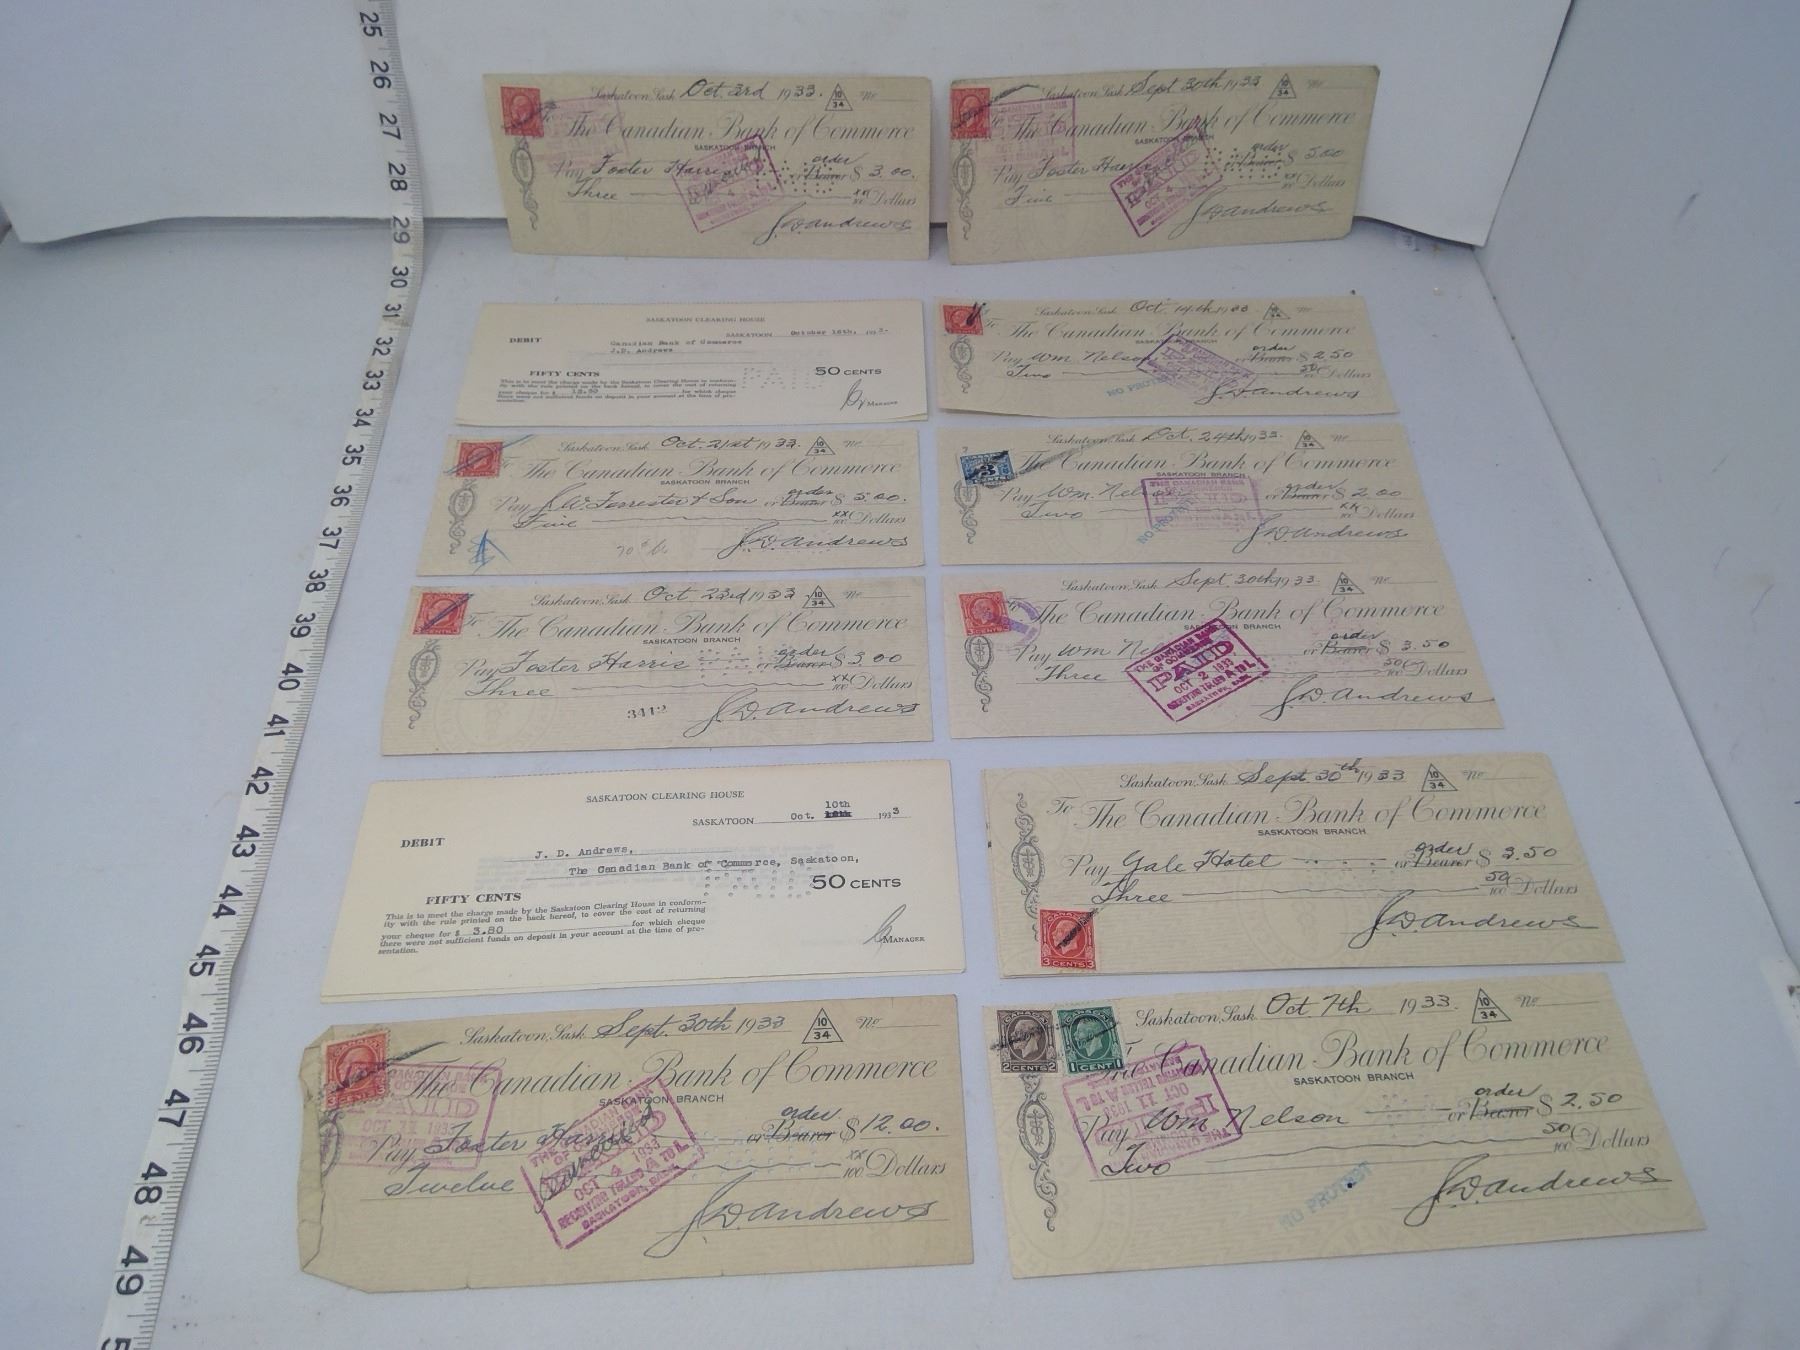 25
26
27
28
29
30
31
32
33
34
35
36
37
38
39
40
41
42
43
44
45
46
47
48
49
5
Saskatoon, Sask Oct. 3rd 1933. 10 34 No
The Canadian Bank of Commerce
SASKATOON BRANCH
Pay Foster Harris order or Bearer $ 3.00.
Three xx/100 Dollars
J.D. Andrews
Saskatoon, Sask Sept 30th 1933 10 34 No
The Canadian Bank of Commerce
SASKATOON BRANCH
Pay Foster Harris order or Bearer $ 5.00
Five xx/100 Dollars
J.D. Andrews
SASKATOON CLEARING HOUSE
SASKATOON October 16th, 193 3-
DEBIT
Canadian Bank of Commerce
J.D. Andrews
PAID
FIFTY CENTS 50 CENTS
This is to meet the charge made by the Saskatoon Clearing House in conform-
ity with the rule printed on the back hereof, to cover the cost of returning
your cheque for $ for which cheque
there were not sufficient funds on deposit in your account at the time of pre-
sentation.
MANAGER
Saskatoon, Sask Oct. 14th 1933 No
To The Canadian Bank of Commerce
SASKATOON BRANCH
Pay Wm Nelson order or Bearer $ 2.50
Two 50/100 Dollars
NO PROTEST
J.D. Andrews
Saskatoon, Sask Oct. 21st 1933. 10 34 No
To The Canadian Bank of Commerce
SASKATOON BRANCH
Pay J.W. Forrester & Son order or Bearer $ 5.00.
Five xx/100 Dollars
J.D. Andrews
Saskatoon, Sask Oct. 24th 1933. 10 34 No
3 CENTS
The Canadian Bank of Commerce
SASKATOON BRANCH
Pay Wm. Nelson order or Bearer $ 2.00
Two xx/100 Dollars
THE CANADIAN BANK
NO PROTEST
J.D. Andrews
Saskatoon, Sask Oct 23rd 1933 10 34 No
3 CENTS 3
To The Canadian Bank of Commerce
SASKATOON BRANCH
Pay Foster Harris order or Bearer $ 3.00
Three xx/100 Dollars
3412
J.D. Andrews
Saskatoon, Sask Sept. 30th 1933. 10 34 No
3 CENTS 3
The Canadian Bank of Commerce
SASKATOON BRANCH
Pay Wm Ne order or Bearer $ 3.50
Three 50/100 Dollars
THE CANADIAN BANK
OF COMMERCE
PAID
OCT 2 1933
RECEIVING TELLER A TO L
SASKATOON, SASK.
J.D. Andrews
SASKATOON CLEARING HOUSE
10th
SASKATOON Oct. 193 3
DEBIT
J. D. Andrews,
The Canadian Bank of Commerce, Saskatoon,
PAID
FIFTY CENTS 50 CENTS
This is to meet the charge made by the Saskatoon Clearing House in conform-
ity with the rule printed on the back hereof, to cover the cost of returning
your cheque for $ 3.80 for which cheque
there were not sufficient funds on deposit in your account at the time of pre-
sentation.
MANAGER
Saskatoon, Sask Sept 30th 1933 10 34 No
To The Canadian Bank of Commerce
SASKATOON BRANCH
Pay Yale Hotel order or Bearer $ 3.50
Three 50/100 Dollars
CANADA
3 CENTS 3
J.D. Andrews
Saskatoon, Sask Sept. 30th 1933 10 34 No
CANADA
The Canadian Bank of Commerce
SASKATOON BRANCH
Pay Foster Harris order or Bearer $ 12.00.
Twelve xx/100 Dollars
CANADIAN BANK
OF COMMERCE
PAID
OCT 11 1933
THE CANADIAN BANK
OF COMMERCE
PAID
Cancelled
OCT 4 1933
RECEIVING TELLER A TO L
SASKATOON, SASK.
J.D. Andrews
Saskatoon, Sask Oct 7th 1933. 10 34 No
CANADA
2 CENTS 2
CANADA
1 CENT 1
The Canadian Bank of Commerce
SASKATOON BRANCH
Pay Wm Nelson order or Bearer $ 2.50
Two 50/100 Dollars
OCT 11 1933
PAID
NO PROTEST
J.D. Andrews